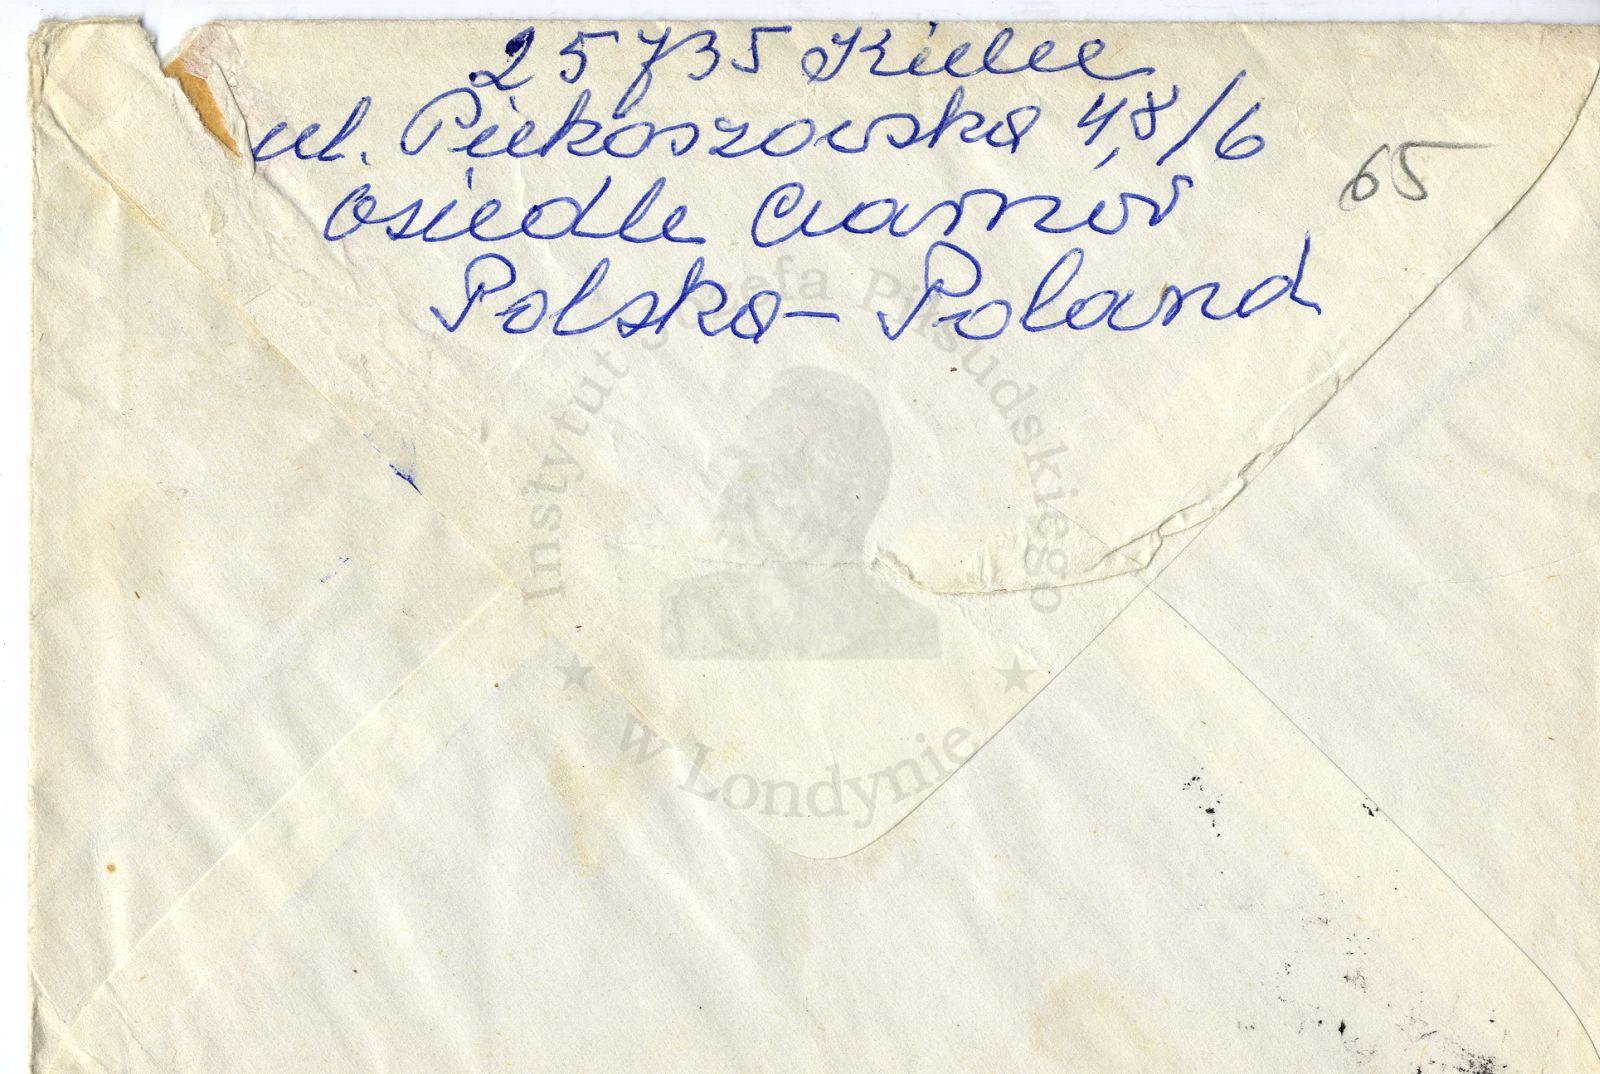 25735 Kielce
ul. Piekoszowska 48/6
Osiedle Czarnów
Polska – Poland
65
Instytut Józefa Piłsudskiego
★ w Londynie ★